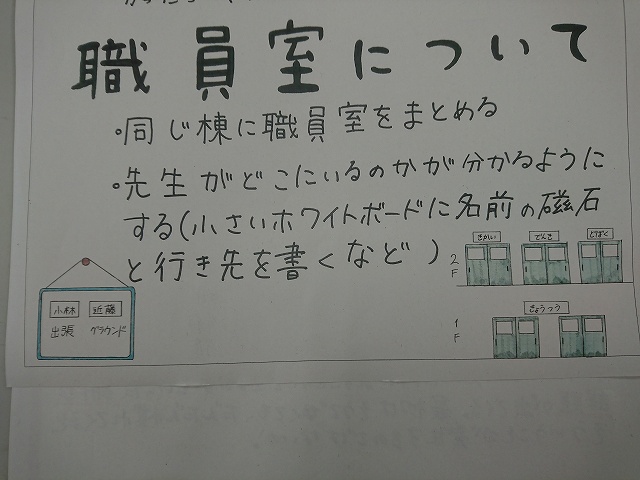 職員室について
・同じ棟に職員室をまとめる
・先生がどこにいるのかが分かるように
する(小さいホワイトボードに名前の磁石
と行き先を書くなど)
小林 近藤
出張 グラウンド
きかい でんき とぼく
2F
きょうつう
1F